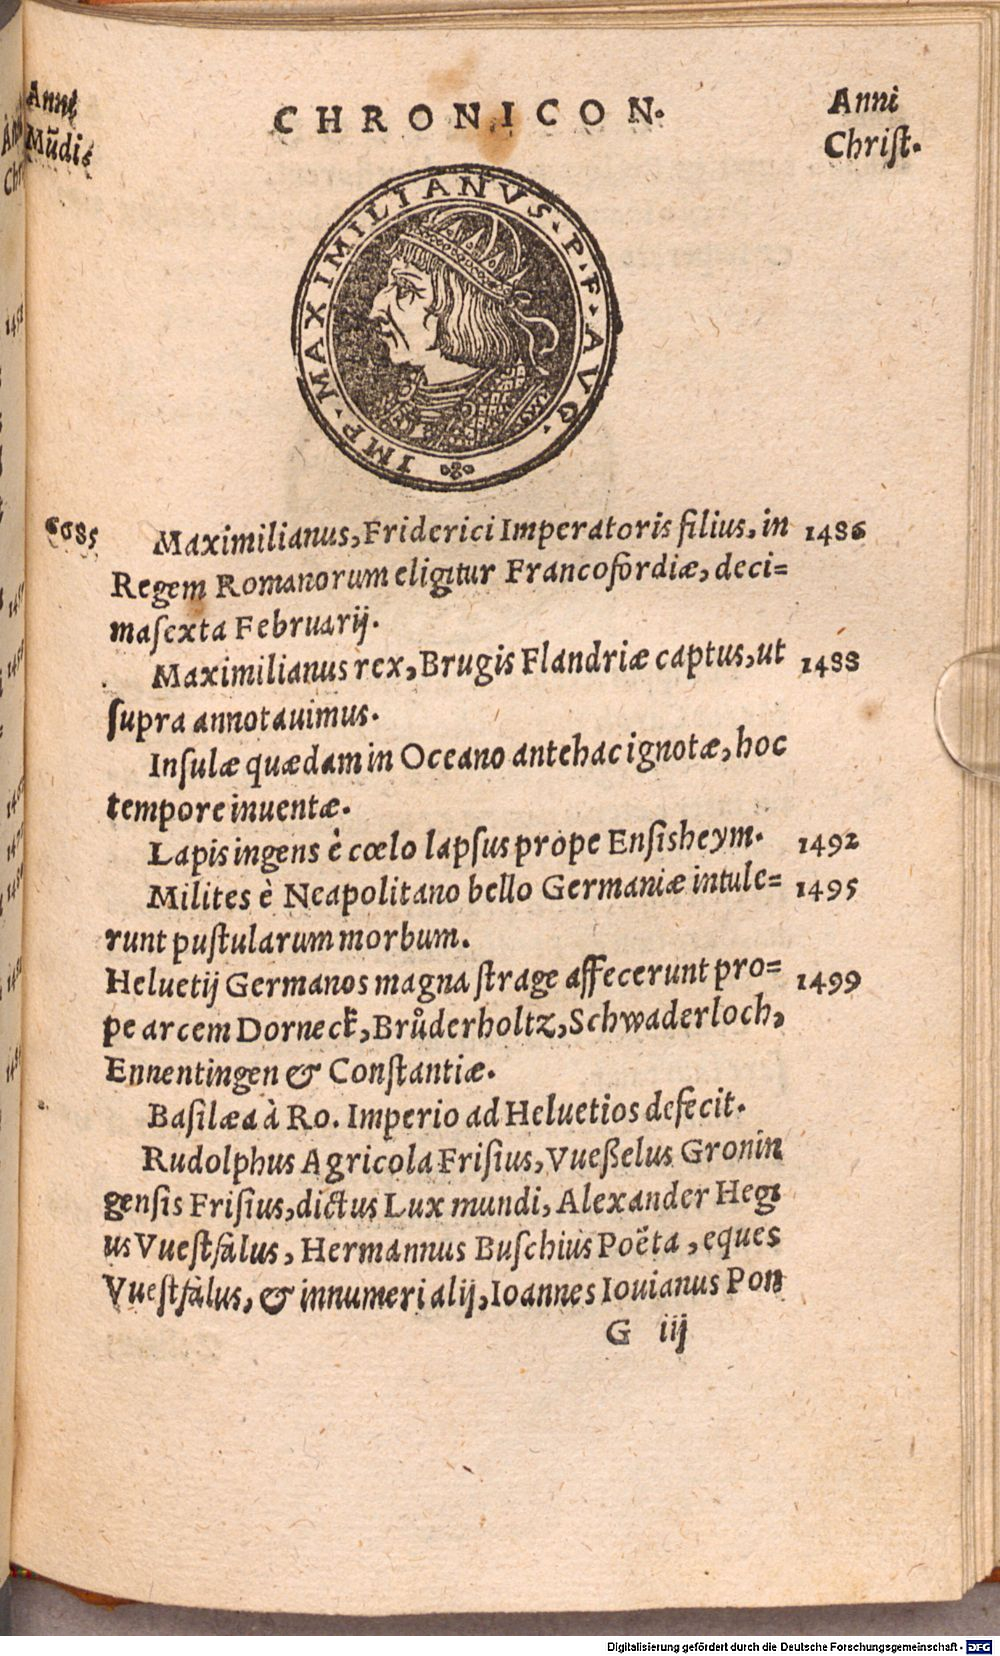 Anni
Mũdi.
CHRONICON.
Anni
Chriſt.
IMP · MAXIMILIANVS · P · F · AVG ·
6685
Maximilianus, Friderici Imperatoris filius, in 1486
Regem Romanorum eligitur Francofordiæ, deci=
maſexta Februarij.
Maximilianus rex, Brugis Flandriæ captus, ut 1488
ſupra annotauimus.
Inſulæ quædam in Oceano antehac ignotæ, hoc
tempore inuentæ.
Lapis ingens è cœlo lapſus prope Enſisheym. 1492
Milites è Neapolitano bello Germaniæ intule= 1495
runt puſtularum morbum.
Heluetij Germanos magna ſtrage affecerunt pro= 1499
pe arcem Dorneck, Brůderholtz, Schwaderloch,
Ennentingen & Conſtantiæ.
Baſilæa à Ro. Imperio ad Heluetios defecit.
Rudolphus Agricola Friſius, Vueßelus Gronin
genſis Friſius, dictus Lux mundi, Alexander Hegi
us Vueſtfalus, Hermannus Buſchius Poëta, eques
Vueſtfalus, & innumeri alij, Ioannes Iouianus Pon
G iij
Digitalisierung gefördert durch die Deutsche Forschungsgemeinschaft - DFG